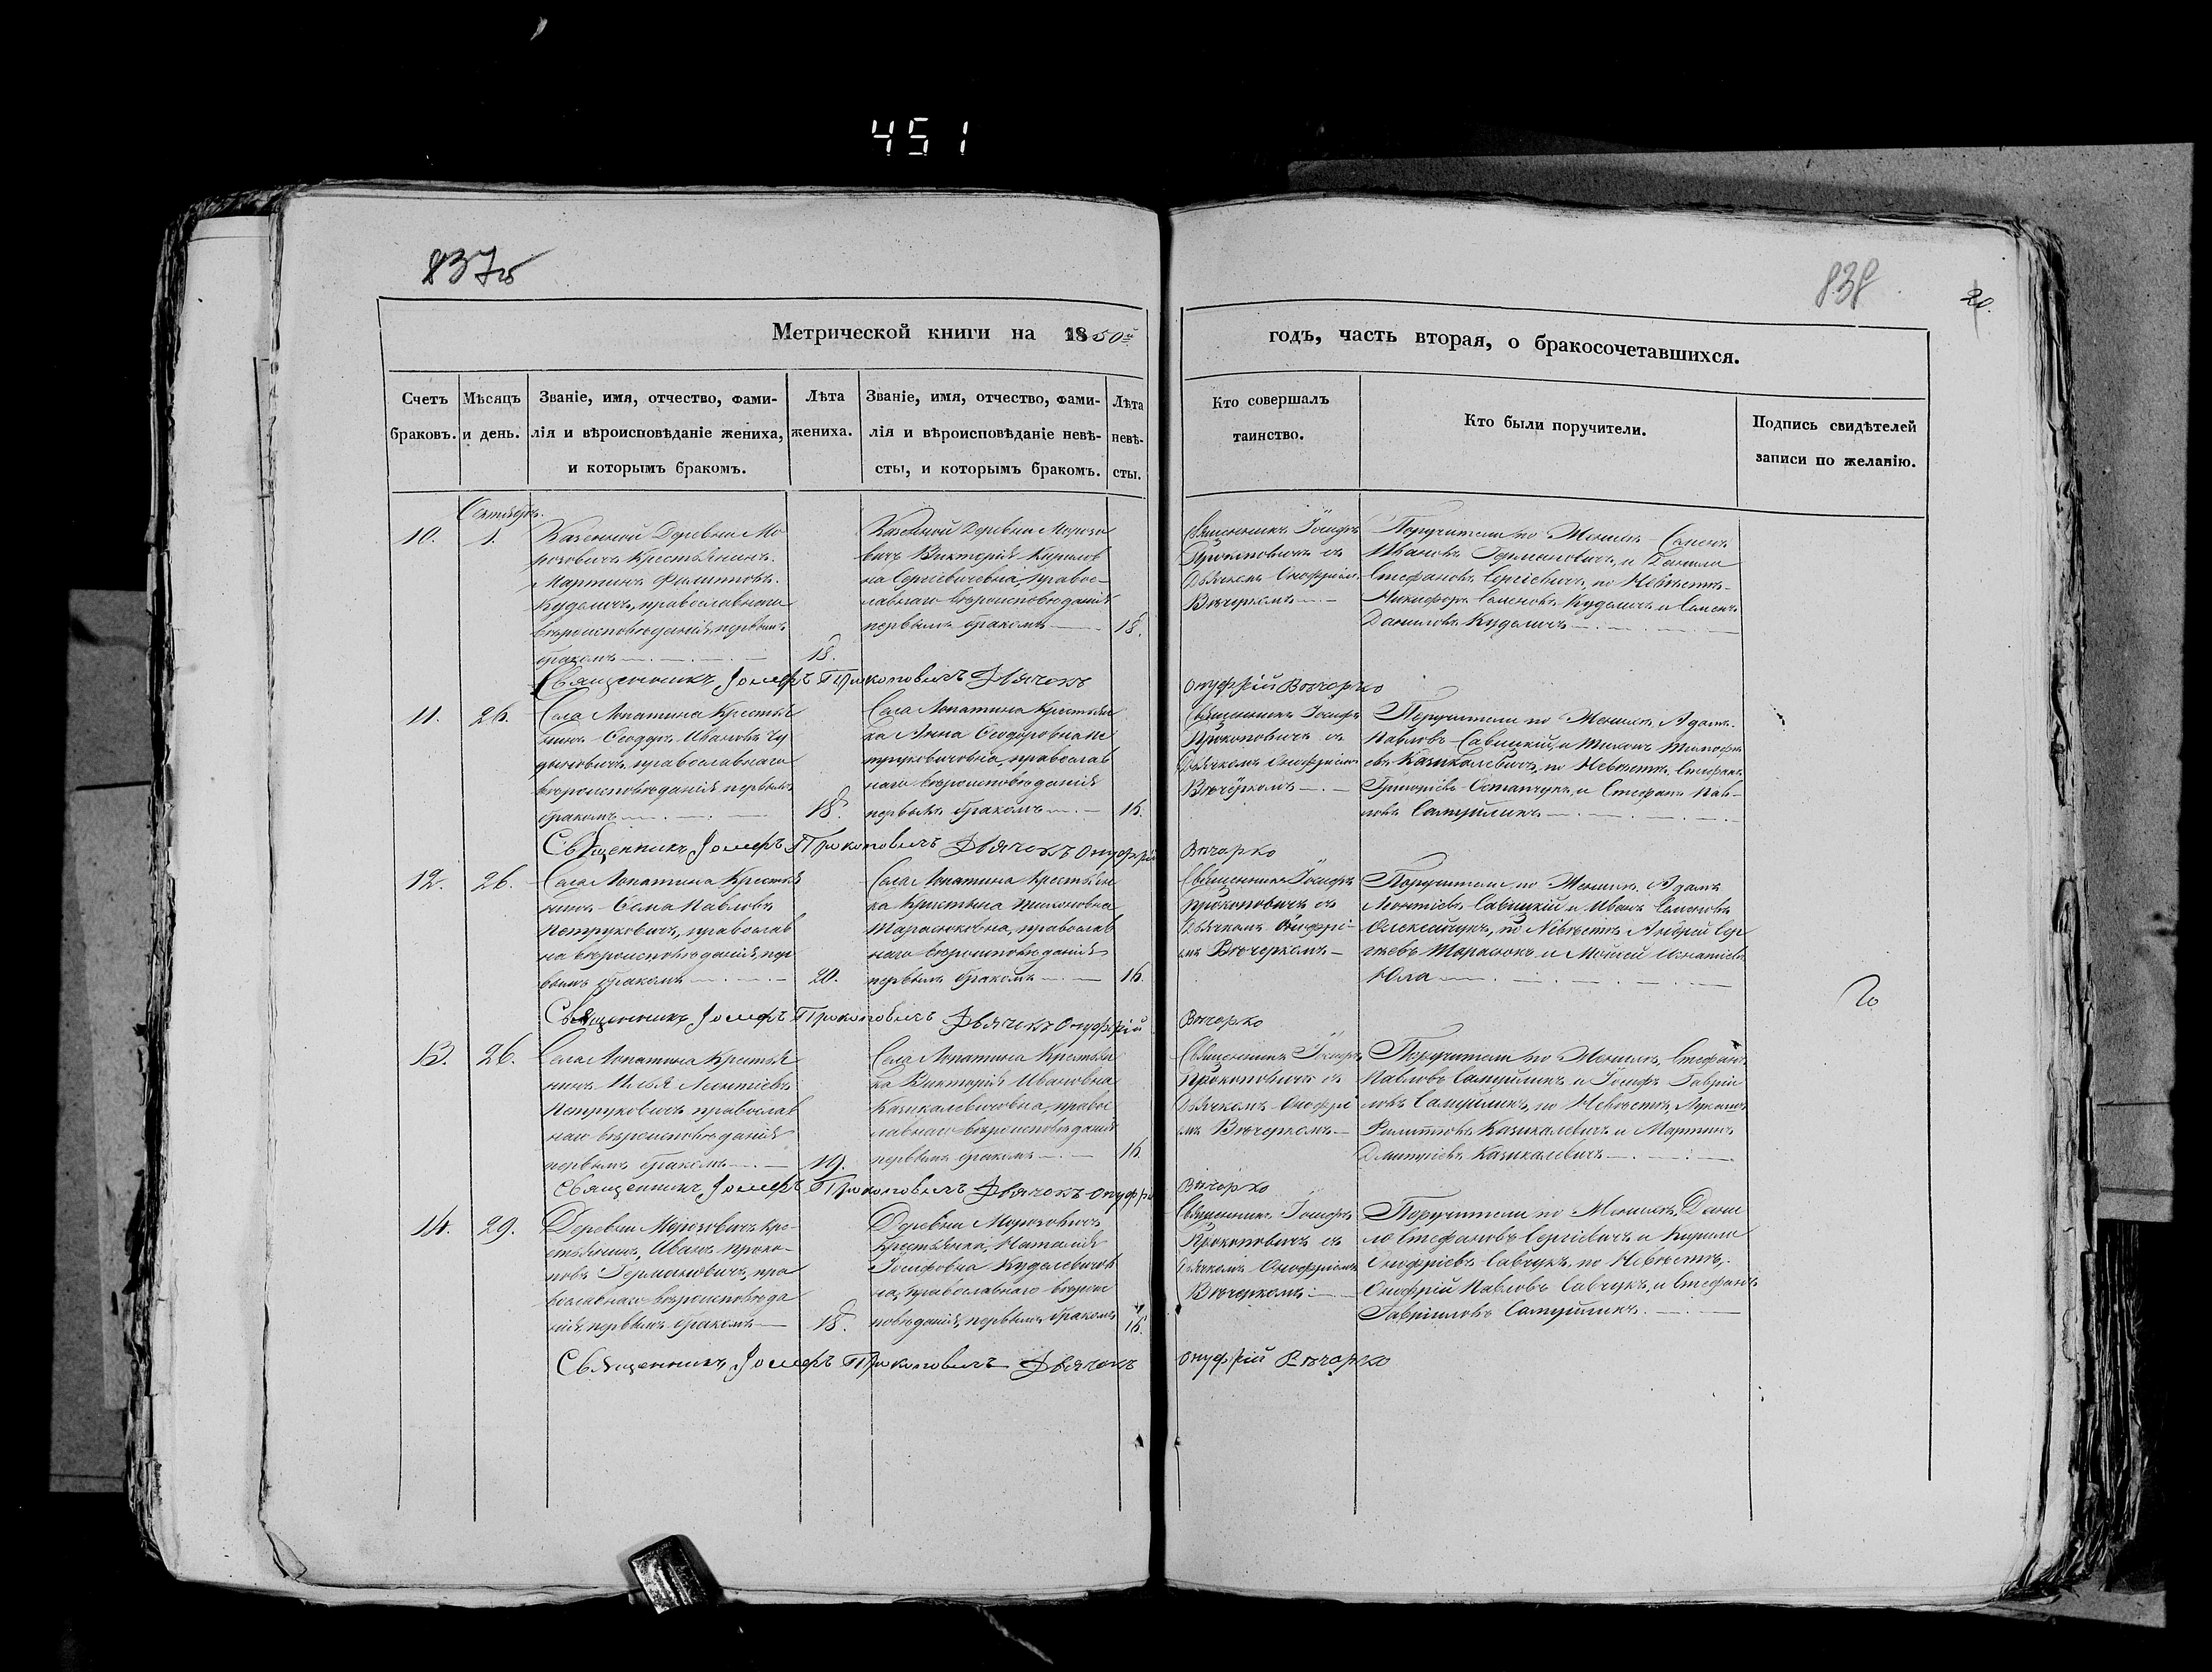 451
837об
838
20.
Метрической книги на 1850й
годъ, часть вторая, о бракосочетавшихся.
Счетъ браковъ.
Мѣсяцъ и день.
Званіе, имя, отчество, фами-
лія и вѣроисповѣданіе жениха,
и которымъ бракомъ.
Лѣта
жениха.
Званіе, имя, отчество, фами-
лія и вѣроисповѣданіе невѣ-
сты, и которымъ бракомъ.
Лѣта
невѣ-
сты.
Кто совершалъ
таинство.
Кто были поручители.
Подпись свидѣтелей
записи по желанію.
Сентябрь.
10.
1.
Казенной Деревни Мо
розовичъ Крестьянинъ
Мартинъ Филиповъ
Куделичъ, православнаго
вѣроисповѣданія, первымъ
бракомъ
18.
Казенной Деревни Морозо
вичъ Викторія Кирилов
на Сергіевичевна, правос-
лавнаго вѣроисповѣданія
первымъ бракомъ
18.
Священникъ Іосифъ
Прокоповичъ съ
Дьячкомъ Онофріемъ
Вечеркомъ
Поручители по Женихѣ Семенъ
Ивановъ Германовичъ, и Данило
Стефановъ Сергіевичъ, по Невѣстѣ
Никифоръ Семеновъ Куделичъ и Семенъ
Даниловъ Куделичъ
Священникъ Іосифъ Прокоповичъ Дьячокъ Онуфрій Вечорко
11.
26.
Села Лопатина Крестья
нинъ Ѳеодоръ Ивановъ
православнаго
вѣроисповѣданія первымъ
бракомъ
18.
Села Лопатина Крестьян
ка Анна Ѳеодоровна Пе
труковичовна, православ
наго вѣроисповѣданія
первымъ бракомъ
16.
Священникъ Іосифъ
Прокоповичъ съ
Дьячкомъ Онофріемъ
Вечеркомъ
Поручители по Женихѣ, Адамъ
Павловъ Савицкій, и Тихонъ Тимофе
евъ Казикалевичъ, по Невѣстѣ Стефанъ
Григоріевъ Остапчукъ, и Стефанъ Пав-
ловъ Самуйликъ
Священникъ Іосифъ Прокоповичъ Дьячокъ Онуфрій Вечорко
12.
26.
Села Лопатина Крестья
нинъ Сема Павловъ
Петруковичъ, православ
на вѣроисповѣданія, пер
вымъ бракомъ
20.
Села Лопатина Крестьян
ка Кристина Тихоновна
Тарасюковна, православ
наго вѣроисповѣданія
первымъ бракомъ
16.
Священникъ Іосифъ
Прокоповичъ съ
Дьячкомъ Онофрі-
емъ Вечеркомъ
Поручители по Женихѣ, Адамъ
Леонтіевъ Савицкій и Иванъ Семеновъ
Олексійчукъ, по Невѣстѣ Андрей Сер
гѣевъ Тарасюкъ и Мойсей Игнатіевъ
Юла
Священникъ Іосифъ Прокоповичъ Дьячокъ Онуфрій Вечорко
13.
26.
Села Лопатина Крестья
нинъ Илья Леонтіевъ
Петруковичъ православ
наго вѣроисповѣданія
первымъ бракомъ
19.
Села Лопатина Крестьян
ка Викторія Ивановна
Казикалевичовна, правос
лавнаго вѣроисповѣданія
первымъ бракомъ
16.
Священникъ Іосифъ
Прокоповичъ съ
Дьячкомъ Онофрі
емъ Вечеркомъ
Поручители по Женихѣ, Стефанъ
Павловъ Самуйликъ и Іосифъ Гаврии
ловъ Самуйликъ, по Невѣстѣ,
Филиповъ Казикалевичъ и Мартинъ
Дмитріевъ Казикалевичъ
Священникъ Іосифъ Прокоповичъ Дьячокъ Онуфрій Вечорко
14.
29.
Деревни Морозовичъ Кре-
стьянинъ, Иванъ Проко-
повъ Германовичъ, пра
вославнаго вѣроисповѣда
нія, первымъ бракомъ
18.
Деревни Морозовичъ
Крестьянка, Наталія
Іосифовна Куделичовна
православнаго вѣроис
повѣданія, первымъ бракомъ
16.
Священникъ Іосифъ
Прокоповичъ съ
Дьячкомъ Онофріемъ
Вечеркомъ
Поручители по Женихѣ, Дани
ло Стефановъ Сергіевичъ и Кирило
Онофріевъ Савчукъ, по Невѣстѣ,
Онофрій Павловъ Савчукъ, и Стефанъ
Гаврииловъ Самуйликъ.
Священникъ Іосифъ Прокоповичъ Дьячокъ Онуфрій Вечорко